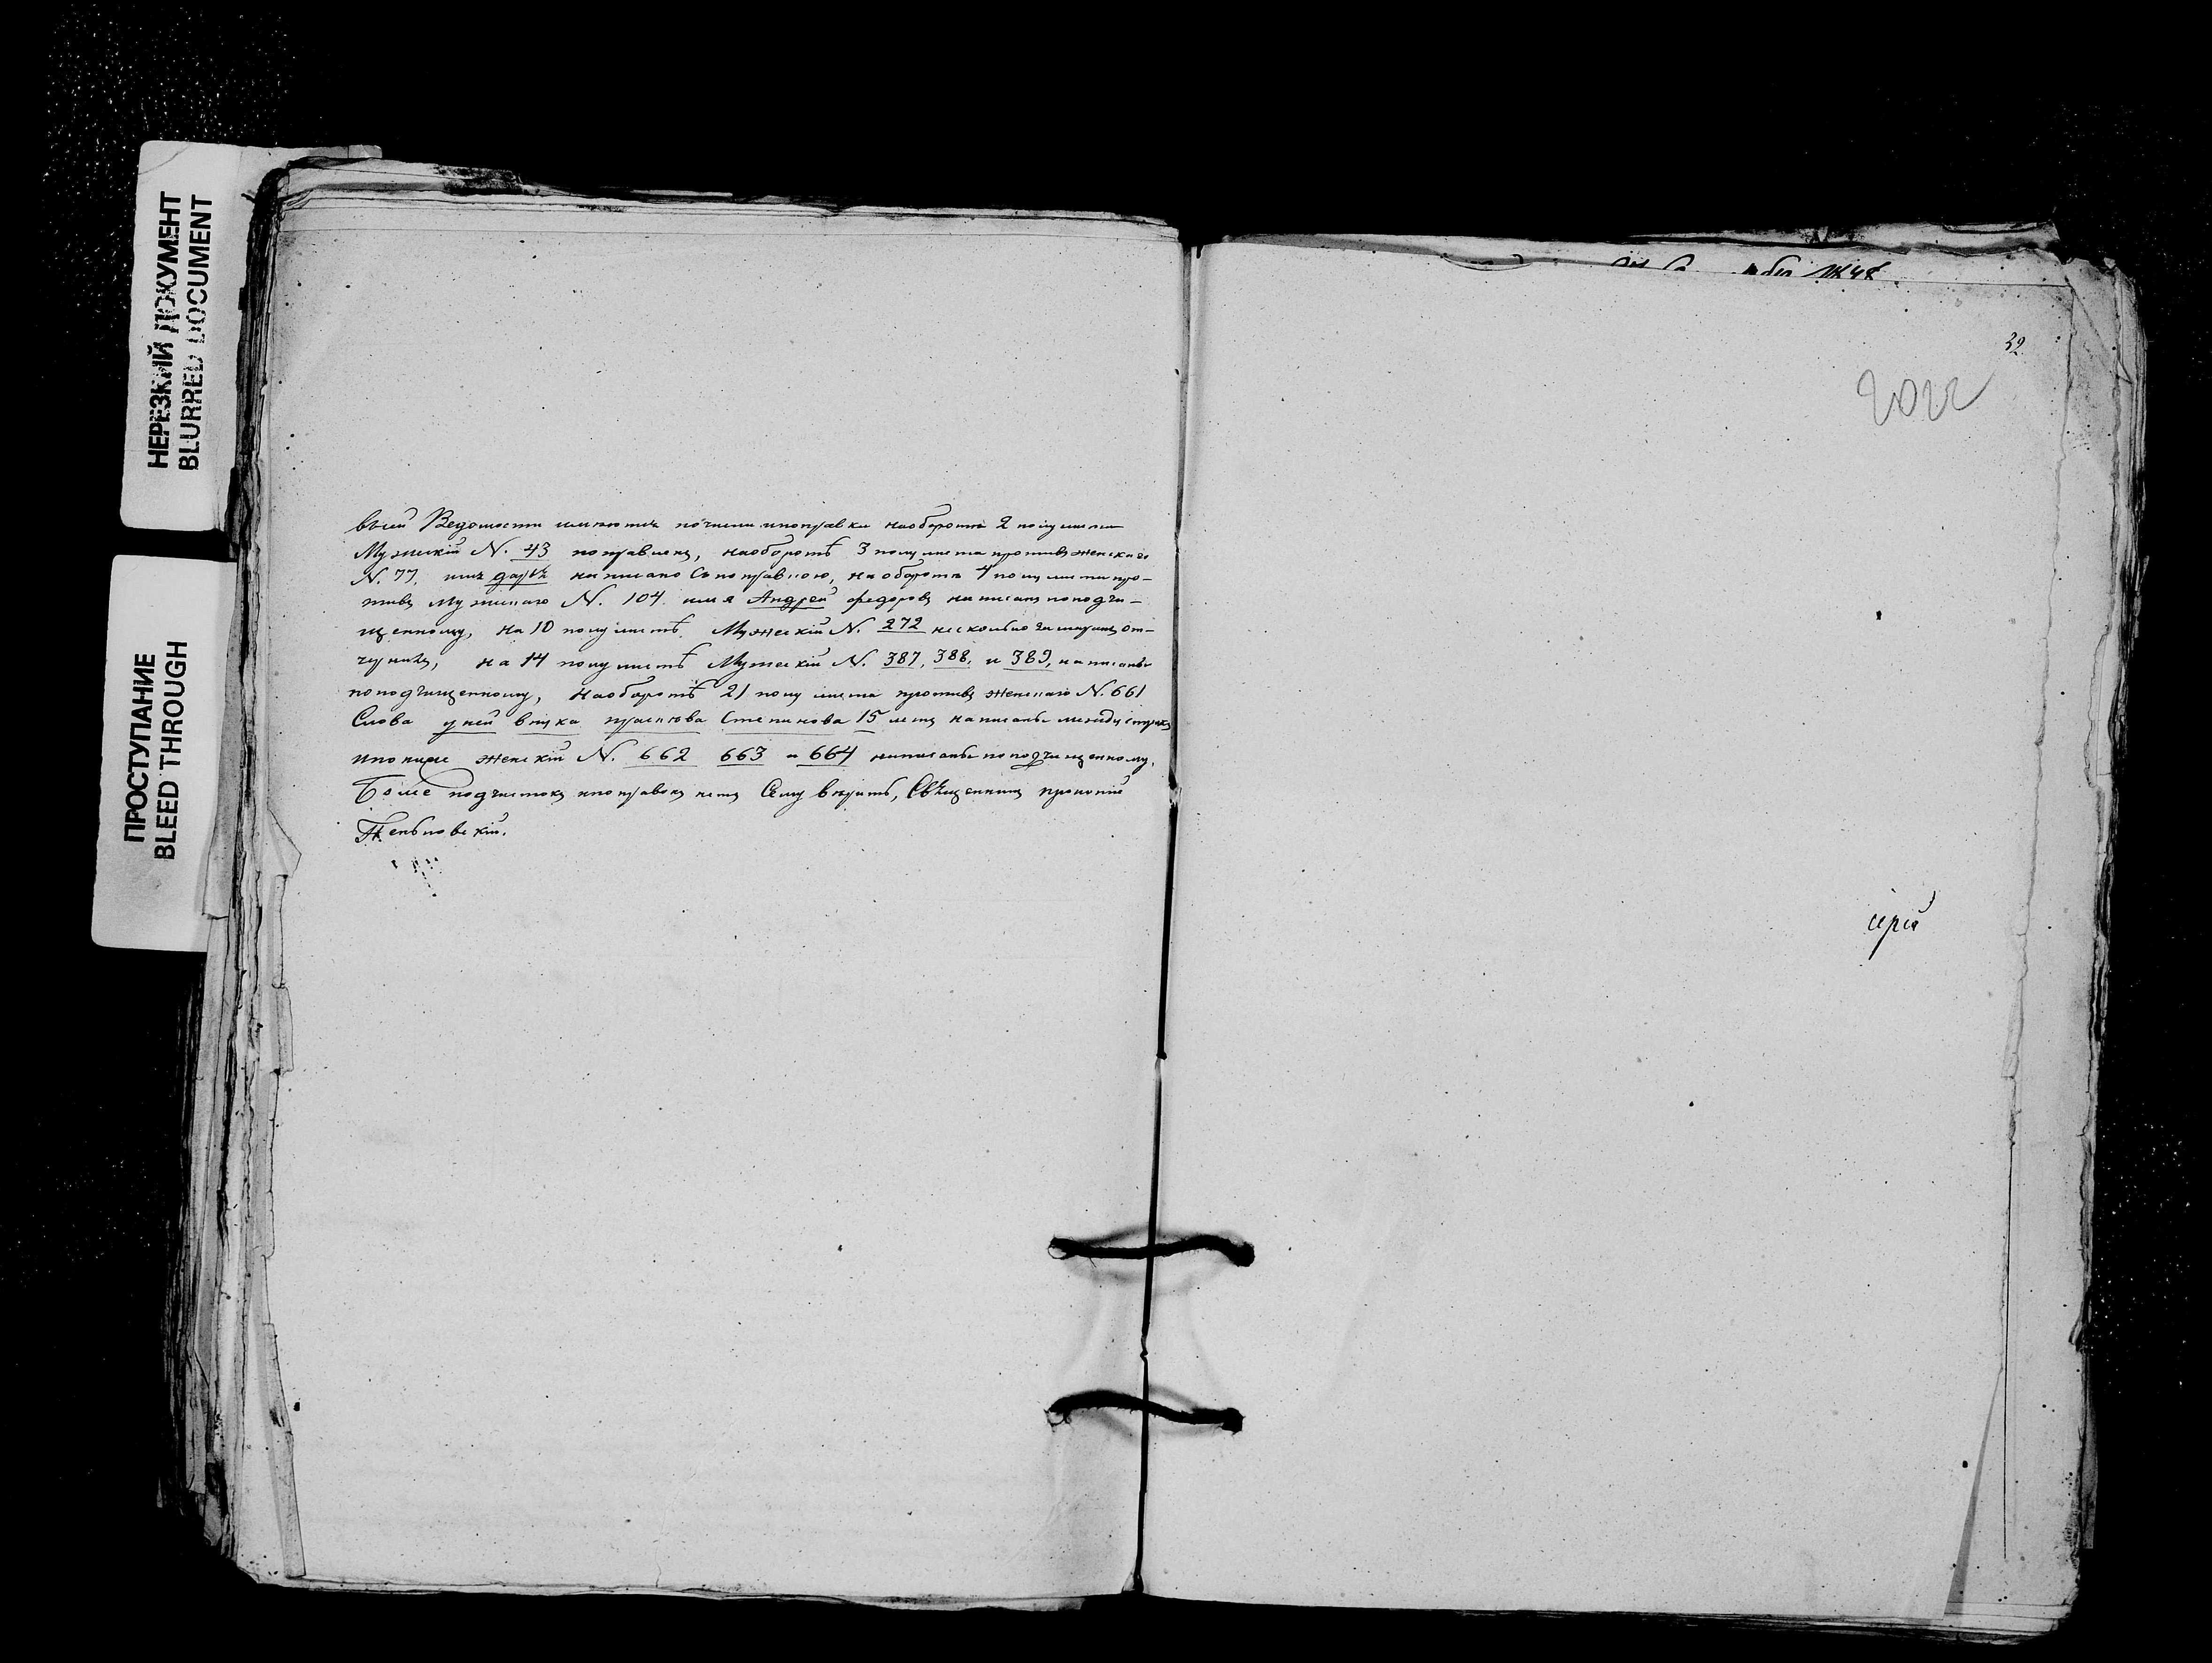 НЕРЕЗКИЙ ДОКУМЕНТ
BLURRED DOCUMENT
ПРОСТУПАНИЕ
BLEED THROUGH
всей Ведомости имеются почистки и поправки на оборотѣ 2 полулиста
Мужескiй N. 43 поправленъ, на оборотѣ 3 полулиста противъ женскаго
N. 77. имя дарья написано съ поправкою, на оборотѣ 4 полулиста про-
тивъ мужскаго N. 104. имя Андрей федоровъ написано по подчи-
щенному, на 10 полулистѣ Мужескiй N. 272 несколько замаранъ от-
на 14 полулистѣ Мужескiй N. 387, 388, и 389, написаны
по подчищенному, на оборотѣ 21 полулиста противъ женскаго N. 661
Слова у ней внука прасковья Степанова 15 летъ написаны между строкъ
и по ниже женскiй N. 662 663 и 664 написаны по подчищенному.
Болѣе подчистокъ и поправокъ нетъ Сему верить, Священникъ прокопiй
32
2022
iерей